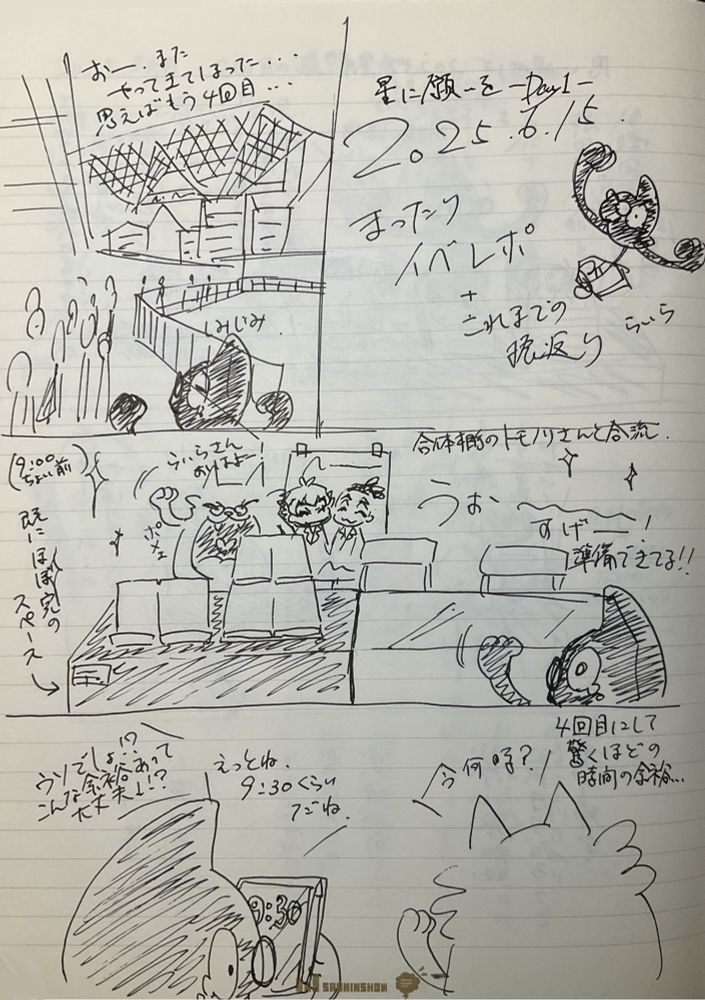 おー、また
やってきてしまった...
思えばもう4回目...
星に願いを -Day1-
2025.6.15.
まったり
イベレポ
+
これまでの
振返り
らいら
しみじみ.
合体相手のトモノリさんと合流.
(9:00
ちょい前)
既にほぼ完の
スペース
らいらさん
おはよー
ポフェ
うぉ〜
すげー!
準備できてる!!
4回目にして
驚くほどの
時間の余裕...
今何時?
えっとね.
9:30くらい
だね.
ウソでしょ!?
こんな余裕あって
大丈夫!?
9:30
SANNINSHOW